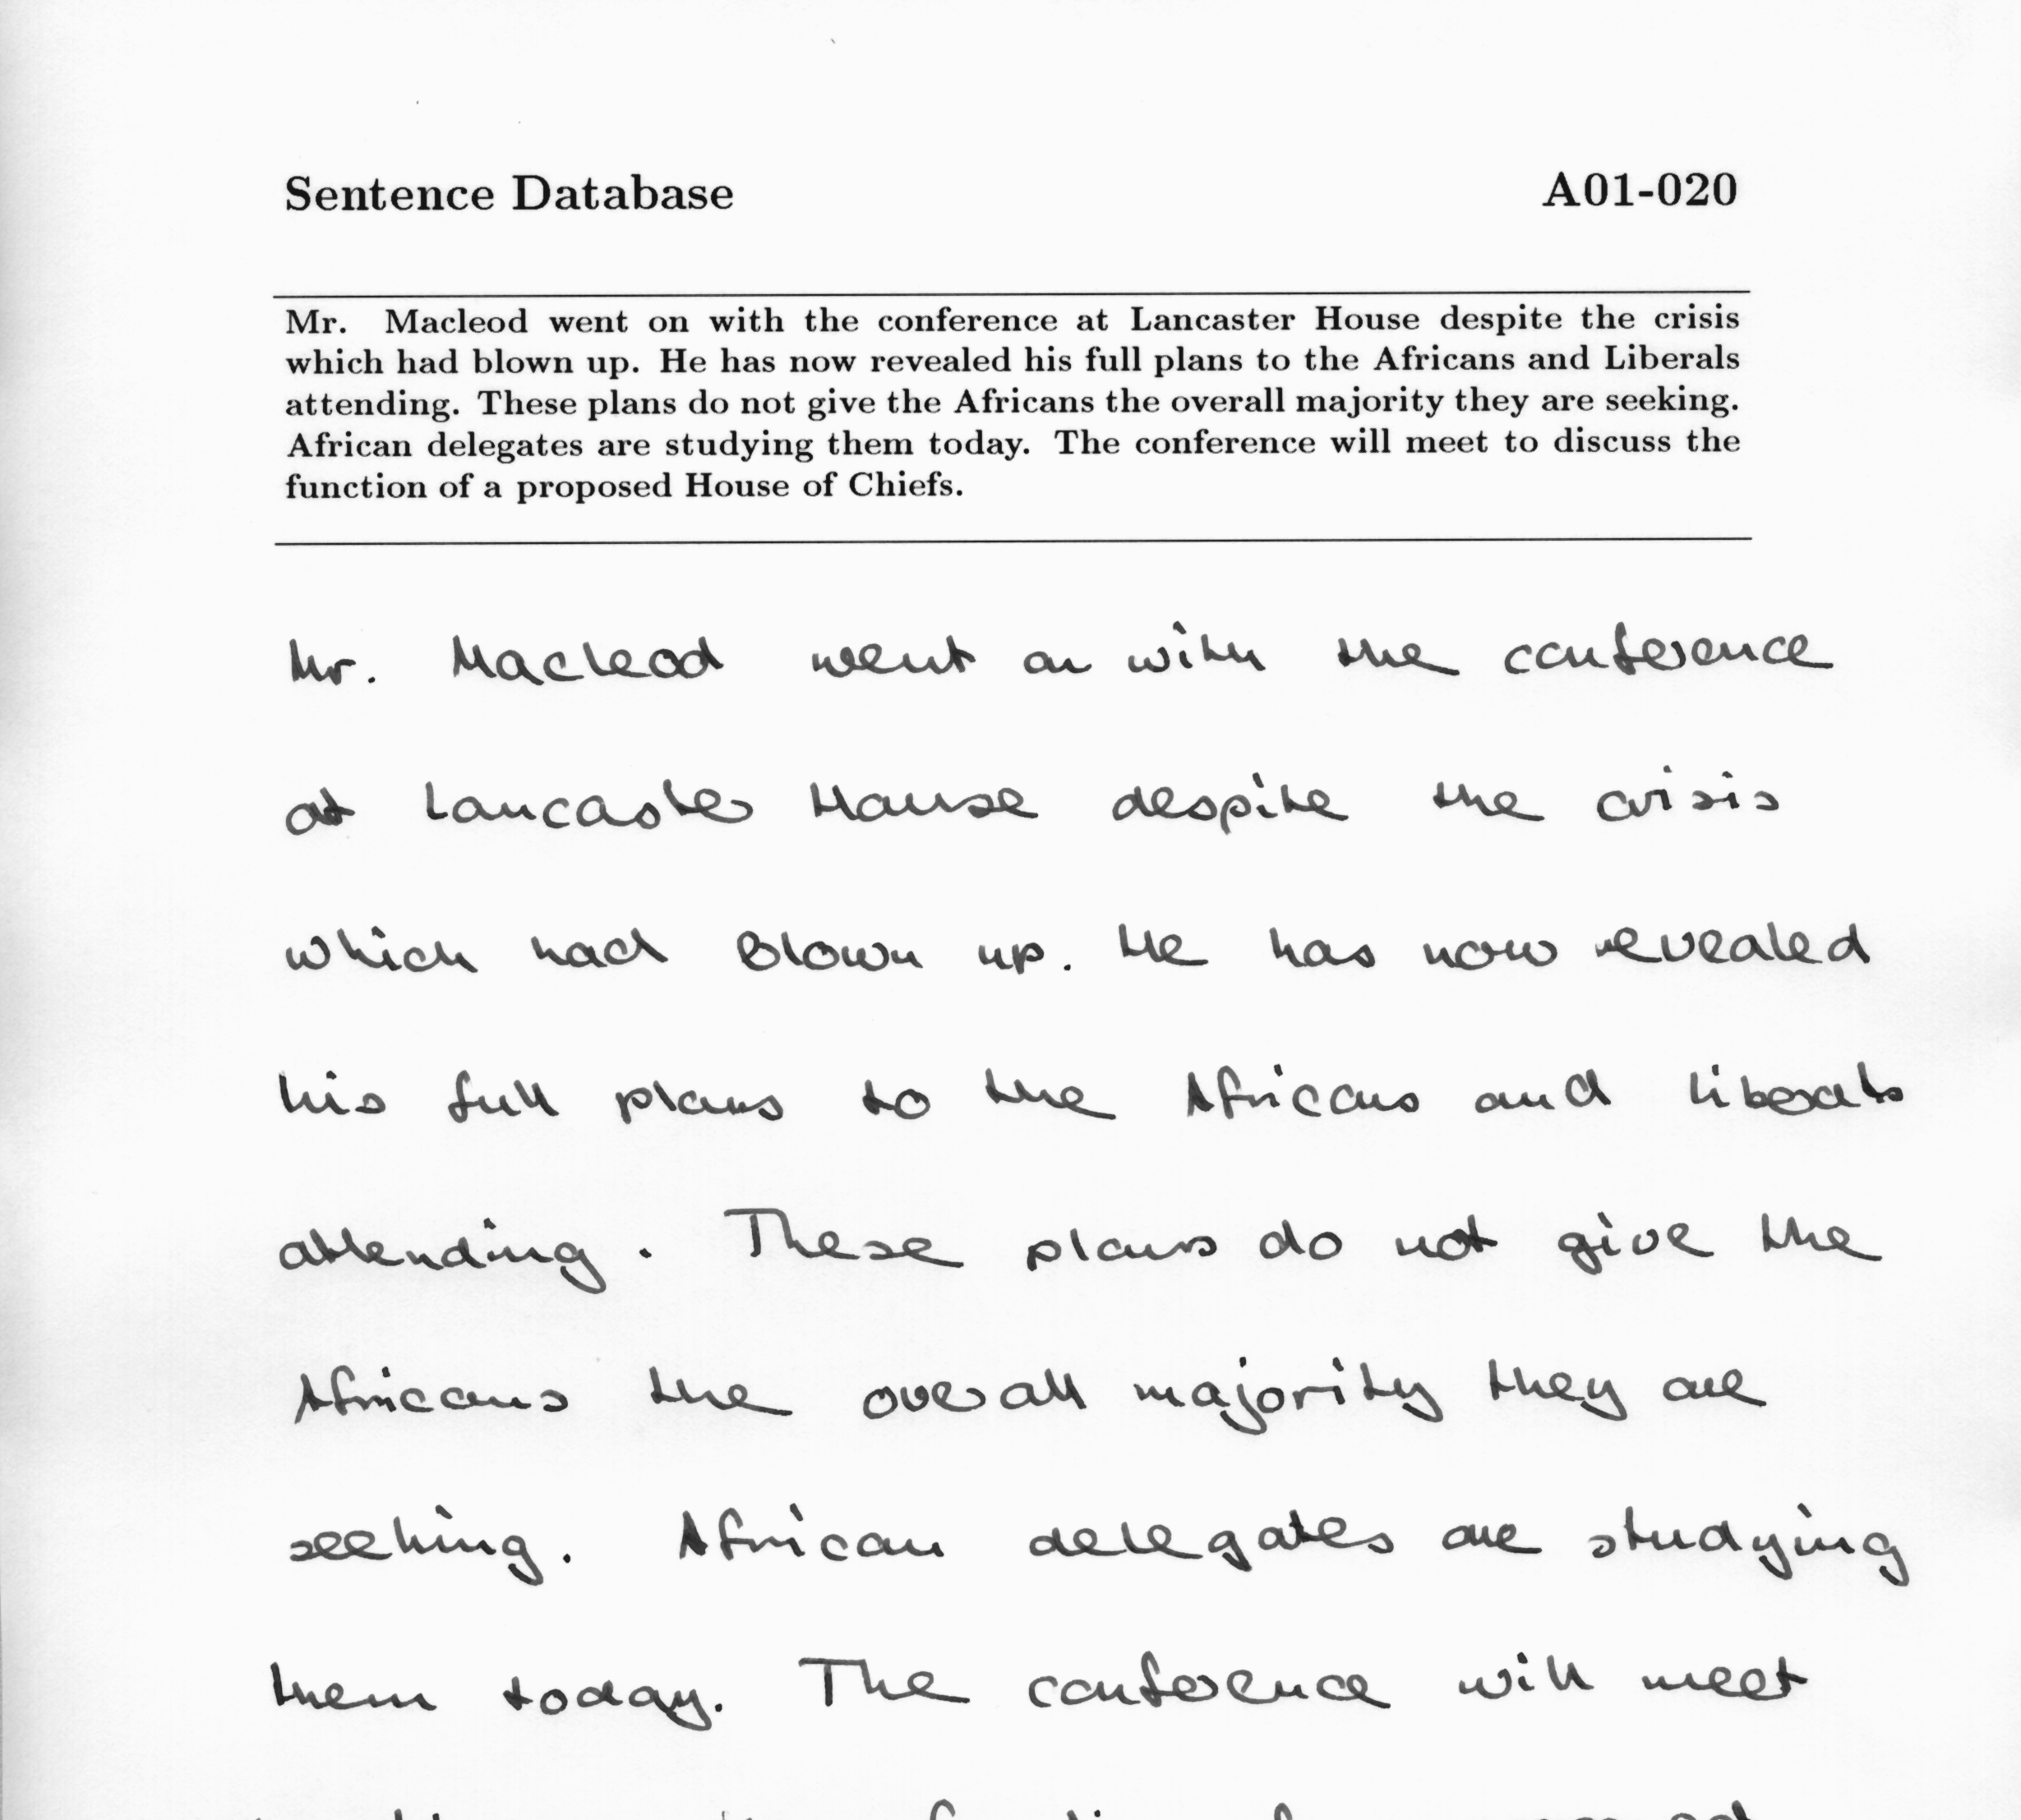 Sentence Database A01-020
Mr. Macleod went on with the conference at Lancaster House despite the crisis
which had blown up. He has now revealed his full plans to the Africans and Liberals
attending. These plans do not give the Africans the overall majority they are seeking.
African delegates are studying them today. The conference will meet to discuss the
function of a proposed House of Chiefs.
Mr. Macleod went on with the conference
at Lancaster House despite the crisis
which had blown up. He has now revealed
his full plans to the Africans and Liberals
attending. These plans do not give the
Africans the overall majority they are
seeking. African delegates are studying
them today. The conference will meet